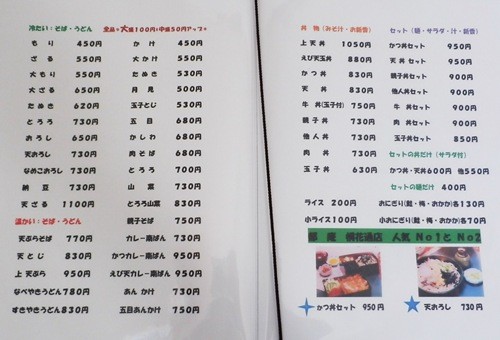 冷たい：そば・うどん
もり 450円
ざる 550円
大もり 550円
大ざる 650円
たぬき 620円
とろろ 730円
おろし 650円
天おろし 730円
なめこおろし 730円
納豆 730円
天ざる 1100円
温かい：そば・うどん
天ぷらそば 770円
天とじ 830円
上天ぷら 950円
なべやきうどん 780円
すきやきうどん 830円
全品+大盛100円：中盛50円アップ+
かけ 450円
大かけ 550円
たぬき 530円
月見 500円
玉子とじ 530円
五目 680円
かしわ 680円
肉そば 680円
とろろ 700円
山菜 730円
とろろ山菜 830円
親子そば 750円
カレー南ばん 730円
かつカレー南ばん 950円
えび天カレー南ばん 950円
あんかけ 730円
五目あんかけ 750円
丼物（みそ汁・お新香）
上天丼 1050円
えび天玉丼 880円
かつ丼 830円
天丼 830円
牛丼（玉子付）750円
親子丼 730円
他人丼 730円
肉丼 730円
玉子丼 630円
セット（麺・サラダ・汁・新香）
かつ丼セット 950円
天丼セット 950円
親子丼セット 900円
他人丼セット 900円
牛丼セット 900円
肉丼セット 900円
玉子丼セット 850円
セットの丼だけ（サラダ付）
かつ丼・天丼600円 他550円
セットの麺だけ 400円
ライス 200円
小ライス100円
おにぎり（鮭・梅・おかか）各130円
小おにぎり（鮭・梅・おかか）各70円
桃花通店 人気 No1と No2
かつ丼セット 950円
天おろし 730円